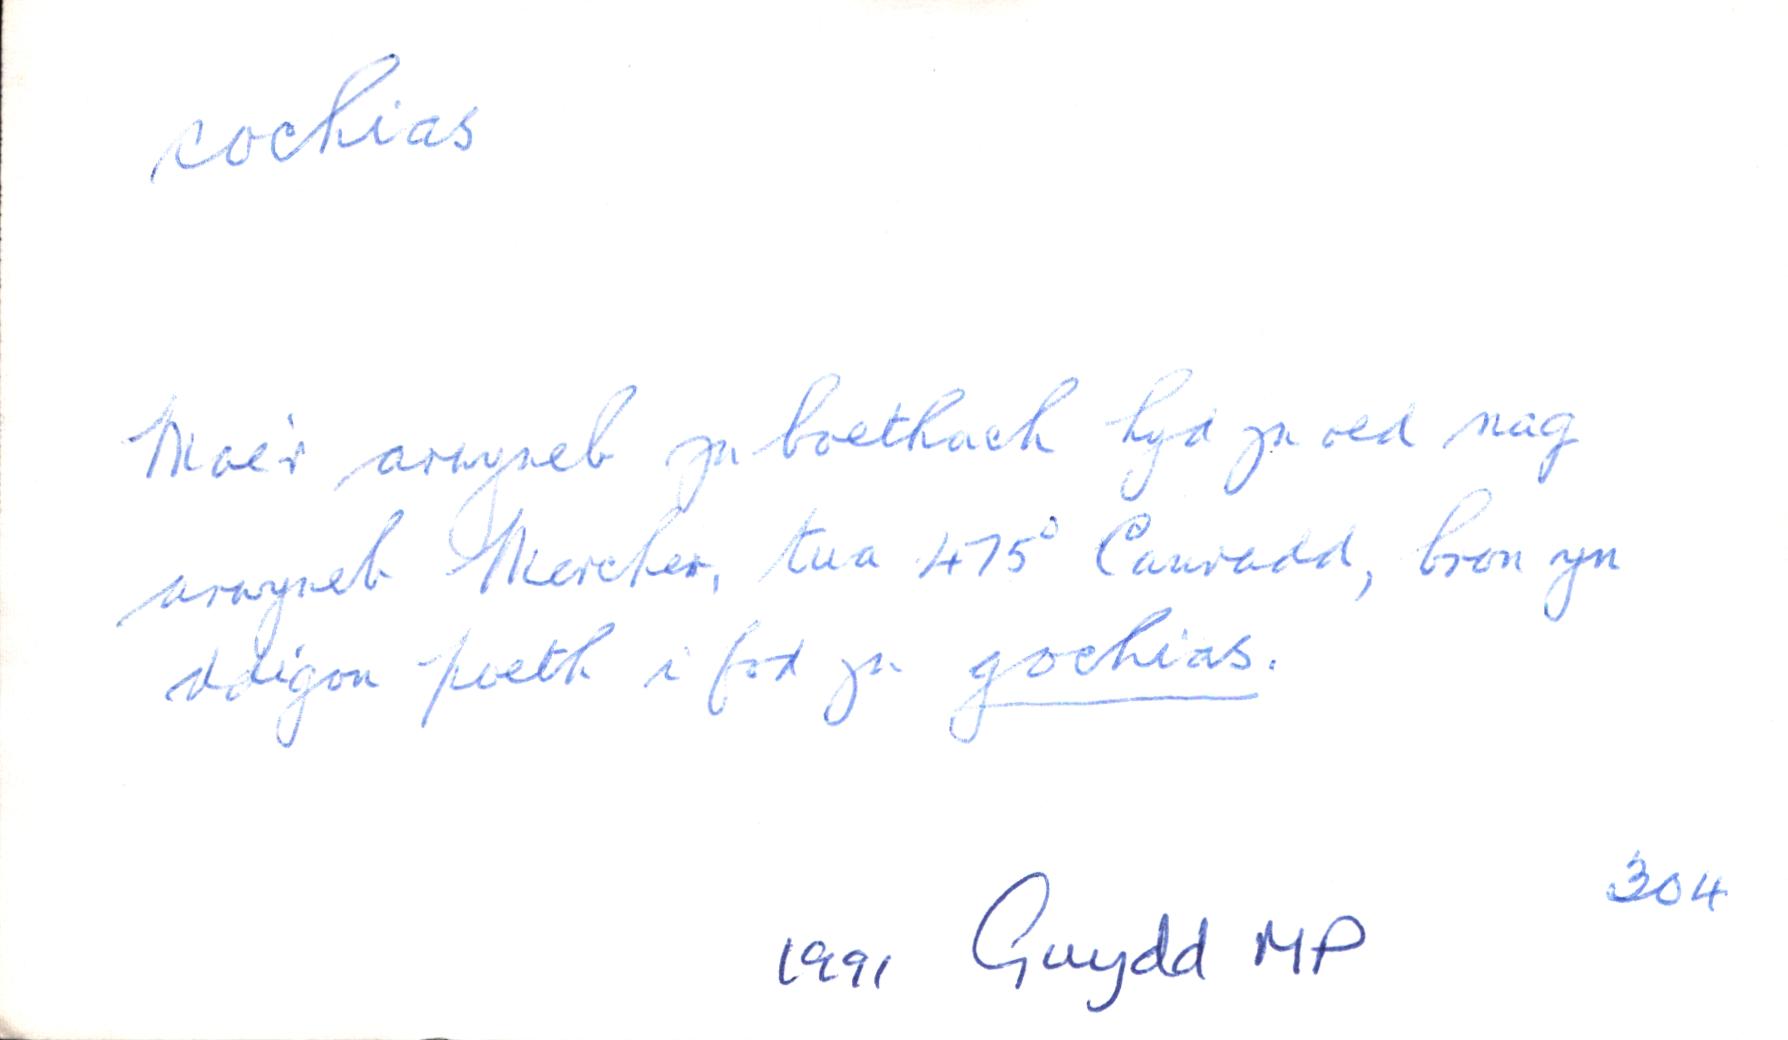 cochias
Mae'r arwyneb yn boethach hyd yn oed nag
arwyneb Mercher, tua 475° Canradd, bron yn
ddigon poeth i fod yn gochias.
304
1991 Gwydd MP